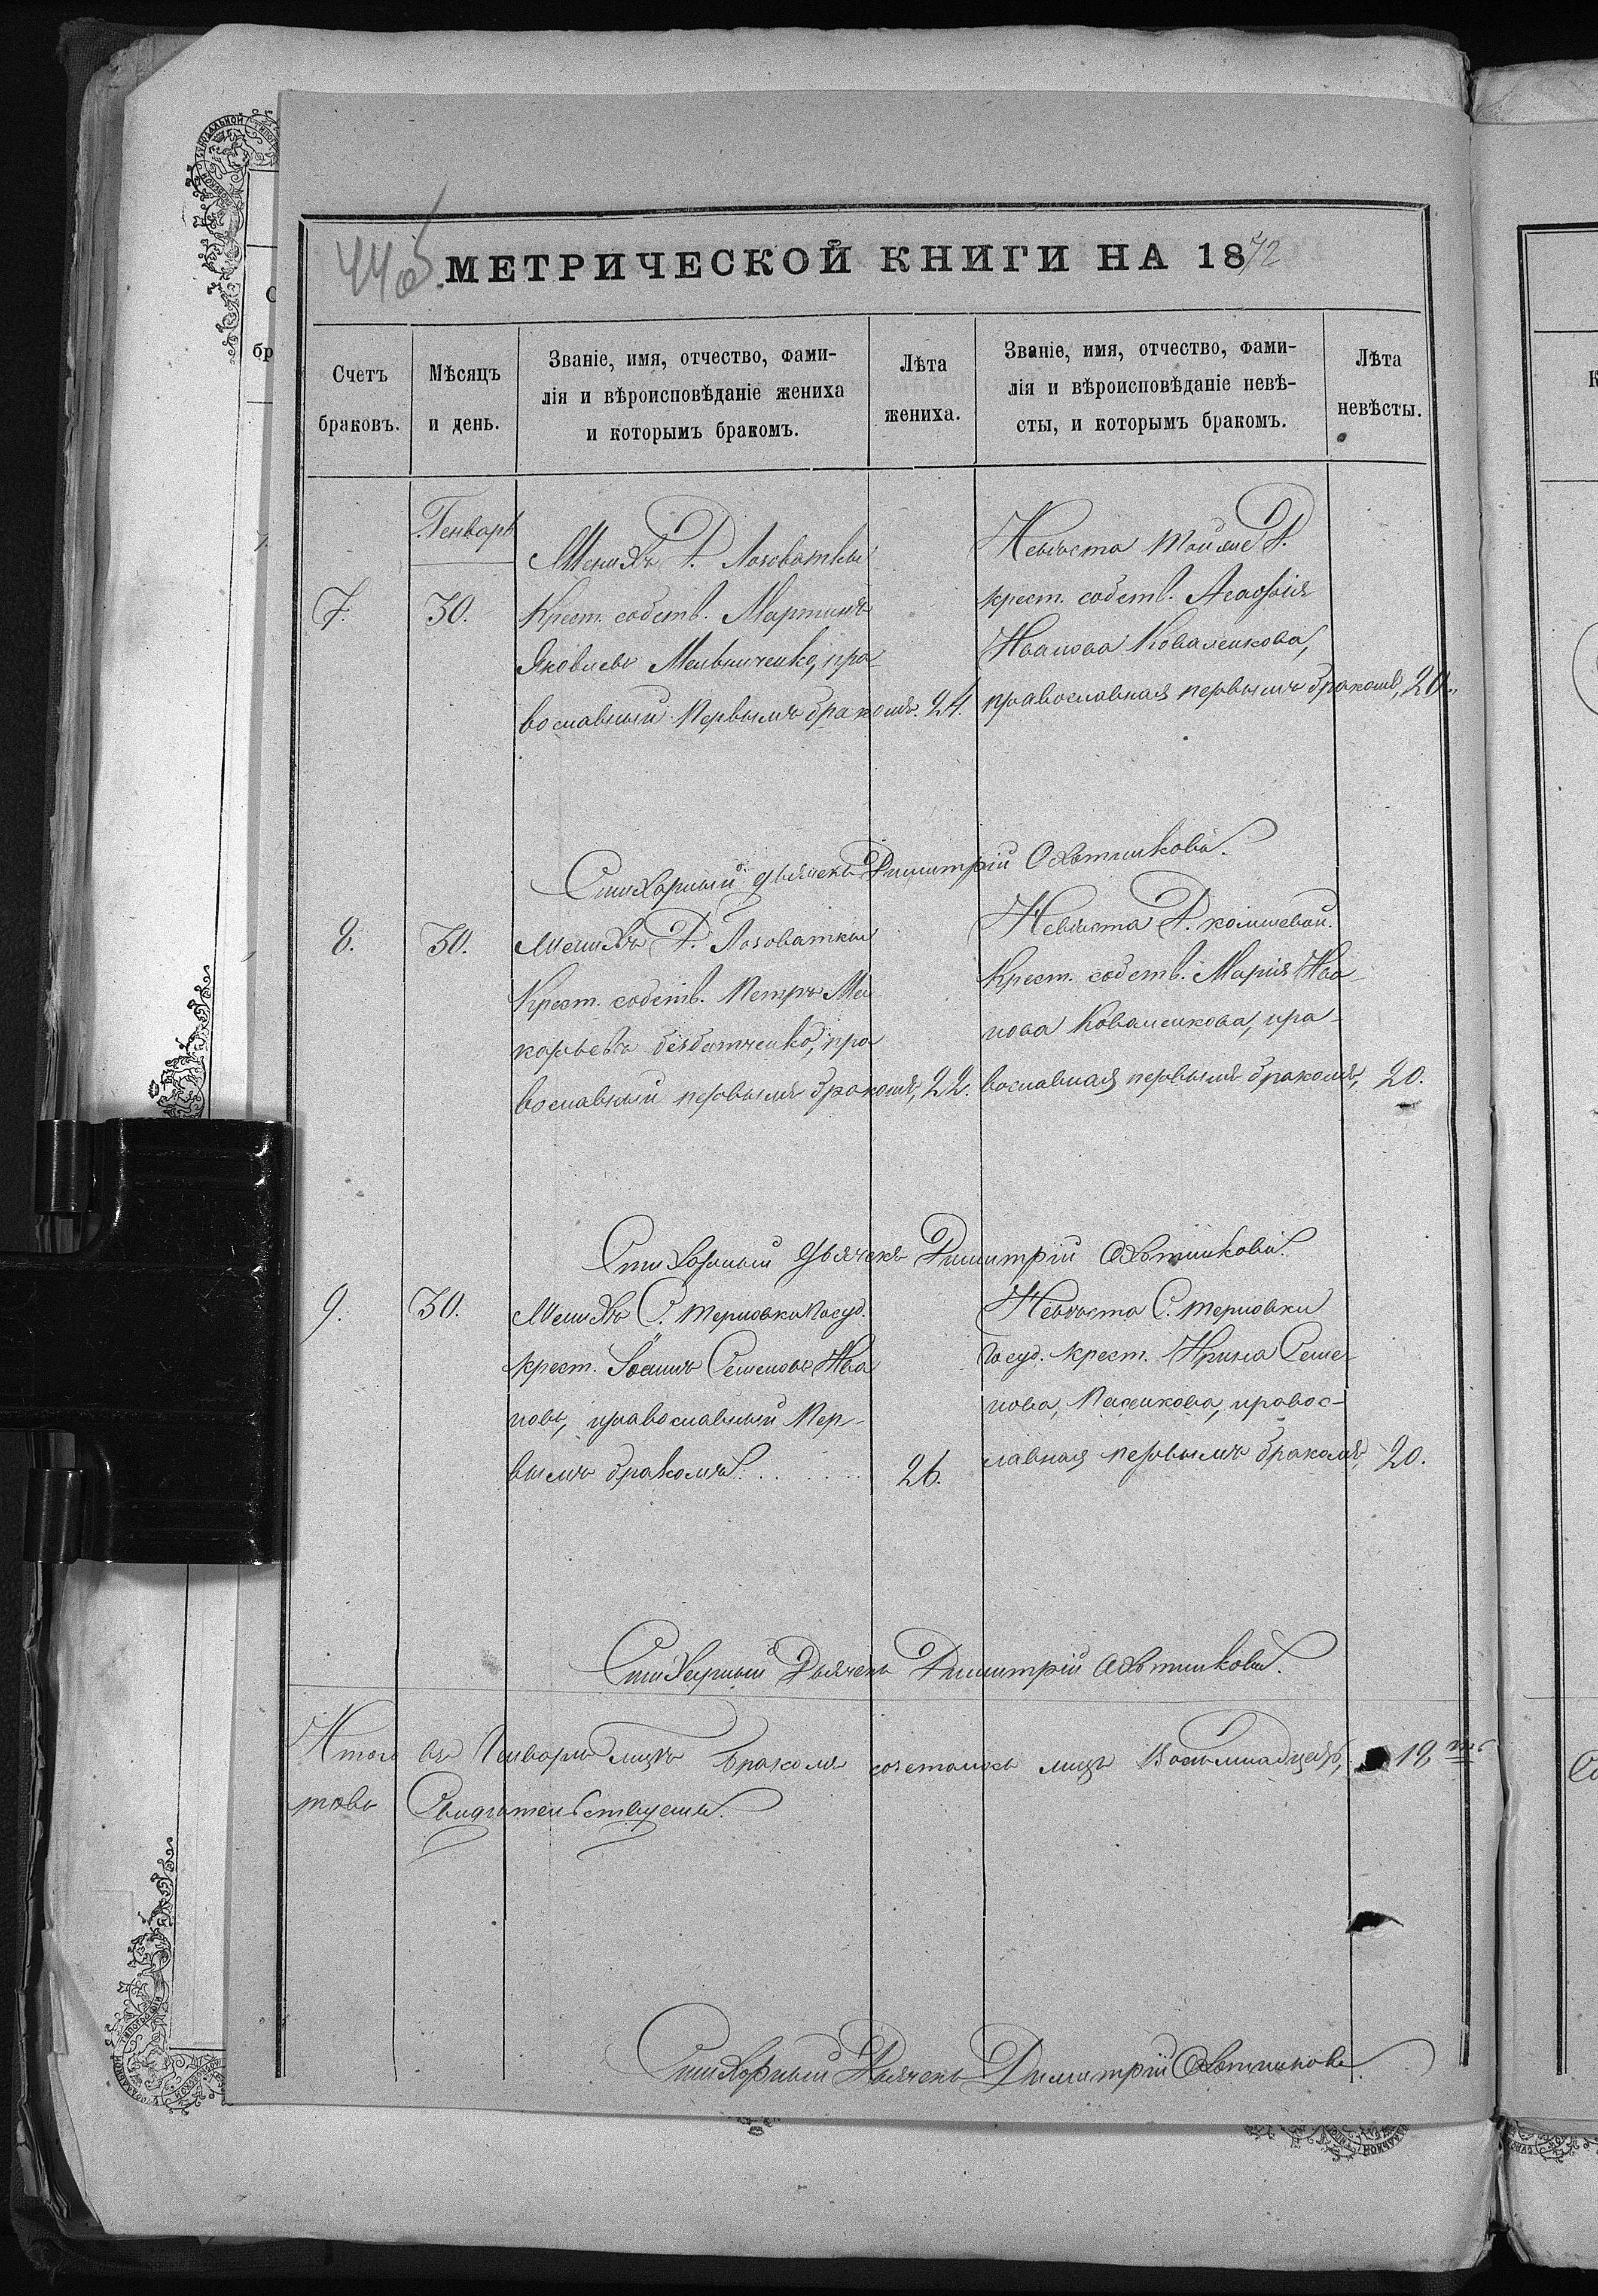 44об.
МЕТРИЧЕСКОЙ КНИГИ НА 1872
Счетъ браковъ.
Мѣсяцъ и день.
Званіе, имя, отчество, фами-
лія и вѣроисповѣданіе жениха
и которымъ бракомъ.
Лѣта жениха.
Званіе, имя, отчество, фами-
лія и вѣроисповѣданіе невѣ-
сты, и которымъ бракомъ.
Лѣта невѣсты.
Генварь
7.
30.
Женихъ Д. Лозоватки
Крест. собств. Мартинъ
Яковлевъ Мельниченко, пра-
вославный первымъ бракомъ. 24.
Невѣста той же Д.
крест. собств.
Иванова Коваленкова,
православная первымъ бракомъ, 20.
Стихарный дьячекъ Димитрій Охотниковъ.
8.
30.
Женихъ Д. Лозоватки
Крест. собств. Петръ Ма-
карьевъ пра-
вославный первымъ бракомъ, 22.
Невѣста Д.
Крест. собств. Марія Ива-
нова Коваленкова, пра-
вославная первымъ бракомъ, 20.
Стихарный дьячекъ Димитрій Охотниковъ.
9.
30.
Женихъ С. Терновки Госуд.
крест. Іоаннъ Семеновъ Ива-
новъ, православный пер-
вымъ бракомъ. 26.
Невѣста С. Терновки
Госуд. Крест. Ирина Семе-
нова, правос-
лавная первымъ бракомъ, 20.
Стихарный Дьячекъ Димитрій Охотниковъ.
Итого въ Генварѣ мцѣ бракомъ сочеталось лицъ Восьмнадцать, 18
томъ Свидѣтельствуемъ.
Стихарный Дьячекъ Димитрій Охотниковъ